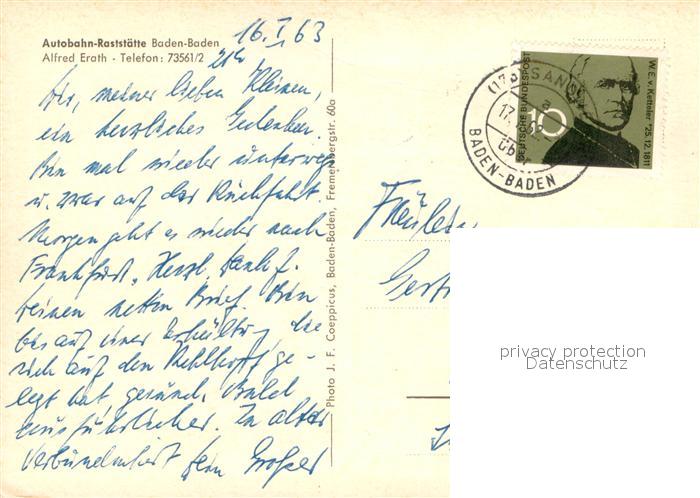 Autobahn-Raststätte Baden-Baden
Alfred Erath - Telefon: 73561/2
16. I. 63
21h
Dir, meiner lieben Kleinen,
ein herzliches Gedenken.
Bin mal wieder unterwegs
u. zwar auf der Rückfahrt.
Morgen geht es wieder nach
Frankfurt. Herzl. Dank f.
deinen netten Brief. Bin
bis auf einer Erkältung, die
sich auf den Kehlkopf ge-
legt hat, gesund. Bald
ausführlicher. In alter
Verbundenheit Dein Großer
Photo J. F. Coeppicus, Baden-Baden, Fremersbergstr. 60a
DEUTSCHE BUNDESPOST
10
W. E. v. Ketteler *25.12.1811
SAND
a
17.
üb
BADEN-BADEN
Fräulein
Gertr
privacy protection
Datenschutz